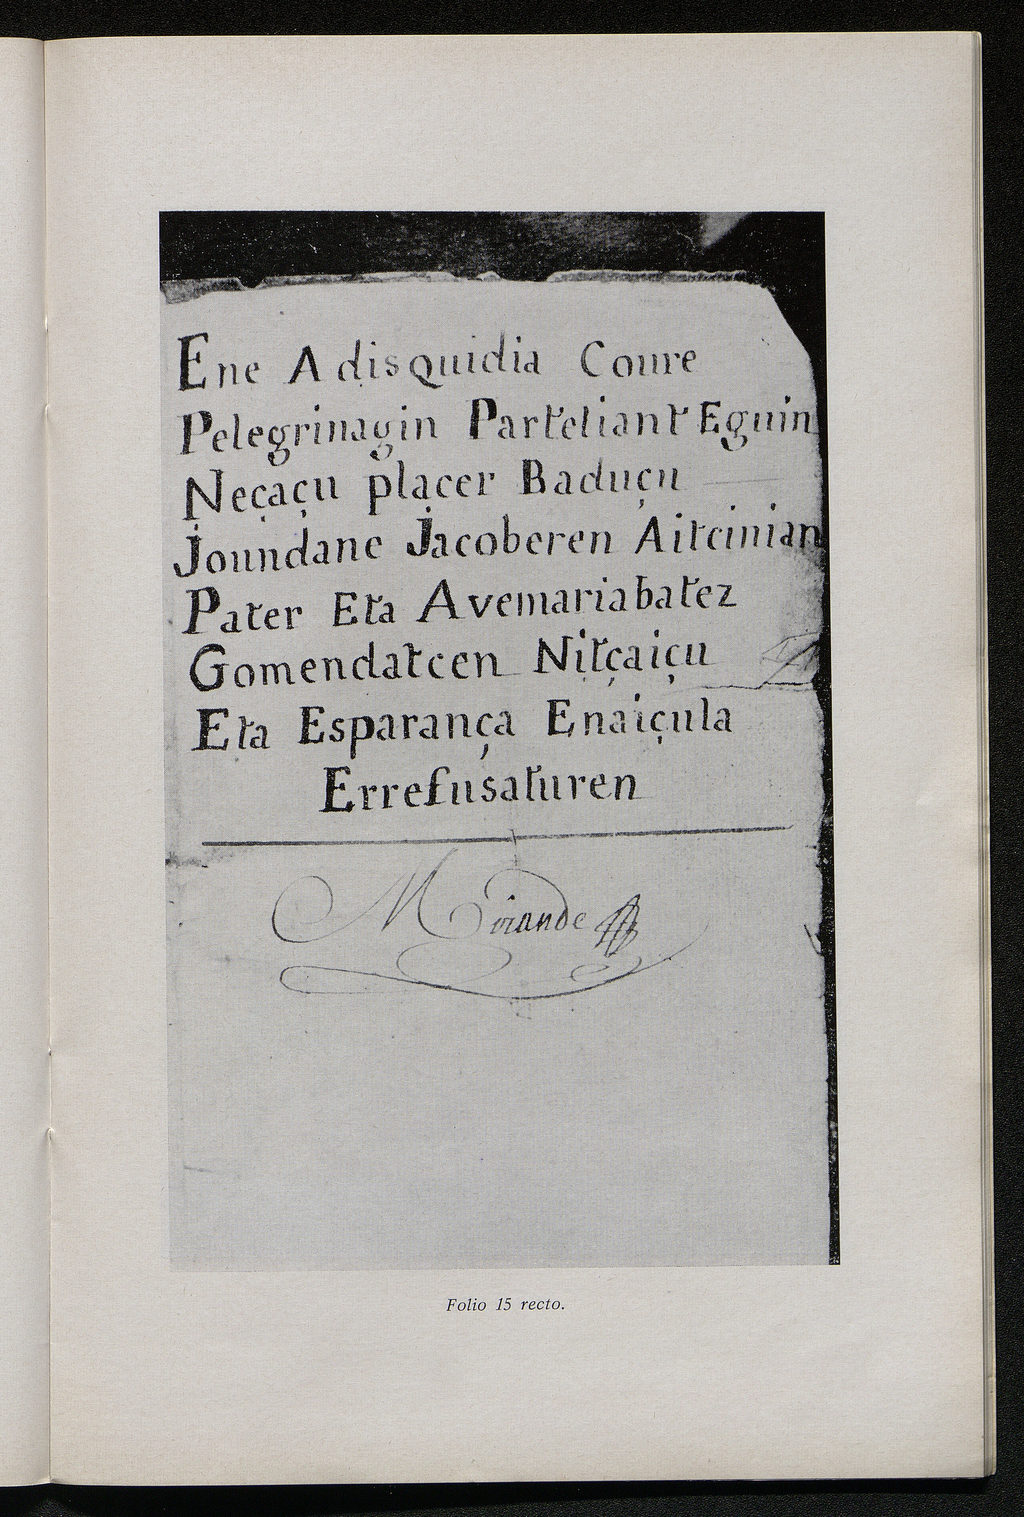 Ene Adisquidia Coure
Pelegrinagin Partetiant Eguin
Neçaçu placer Baduçu
Joundane Jacoberen Aitcinian
Pater Eta Avemariabatez
Gomendatcen Nitçaiçu
Eta Esparança Enaiçula
Errefusaturen
Mirande
Folio 15 recto.